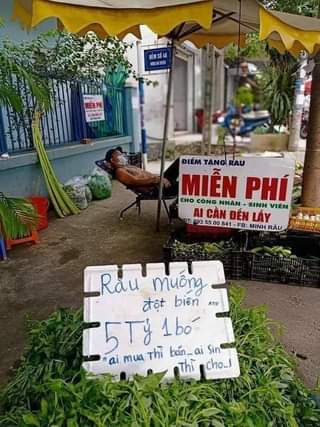 HẺM SỐ 48
ĐIỂM TẶNG RAU
MIỄN PHÍ
CHO CÔNG NHÂN - SINH VIÊN
AI CẦN ĐẾN LẤY
ĐT: 093 55 00 841 - FB: MINH RÂU
MIỄN PHÍ
Rau muống
đột biến
5 Tỷ 1 bó
*ai mua thì bán... ai xin
thì cho..!